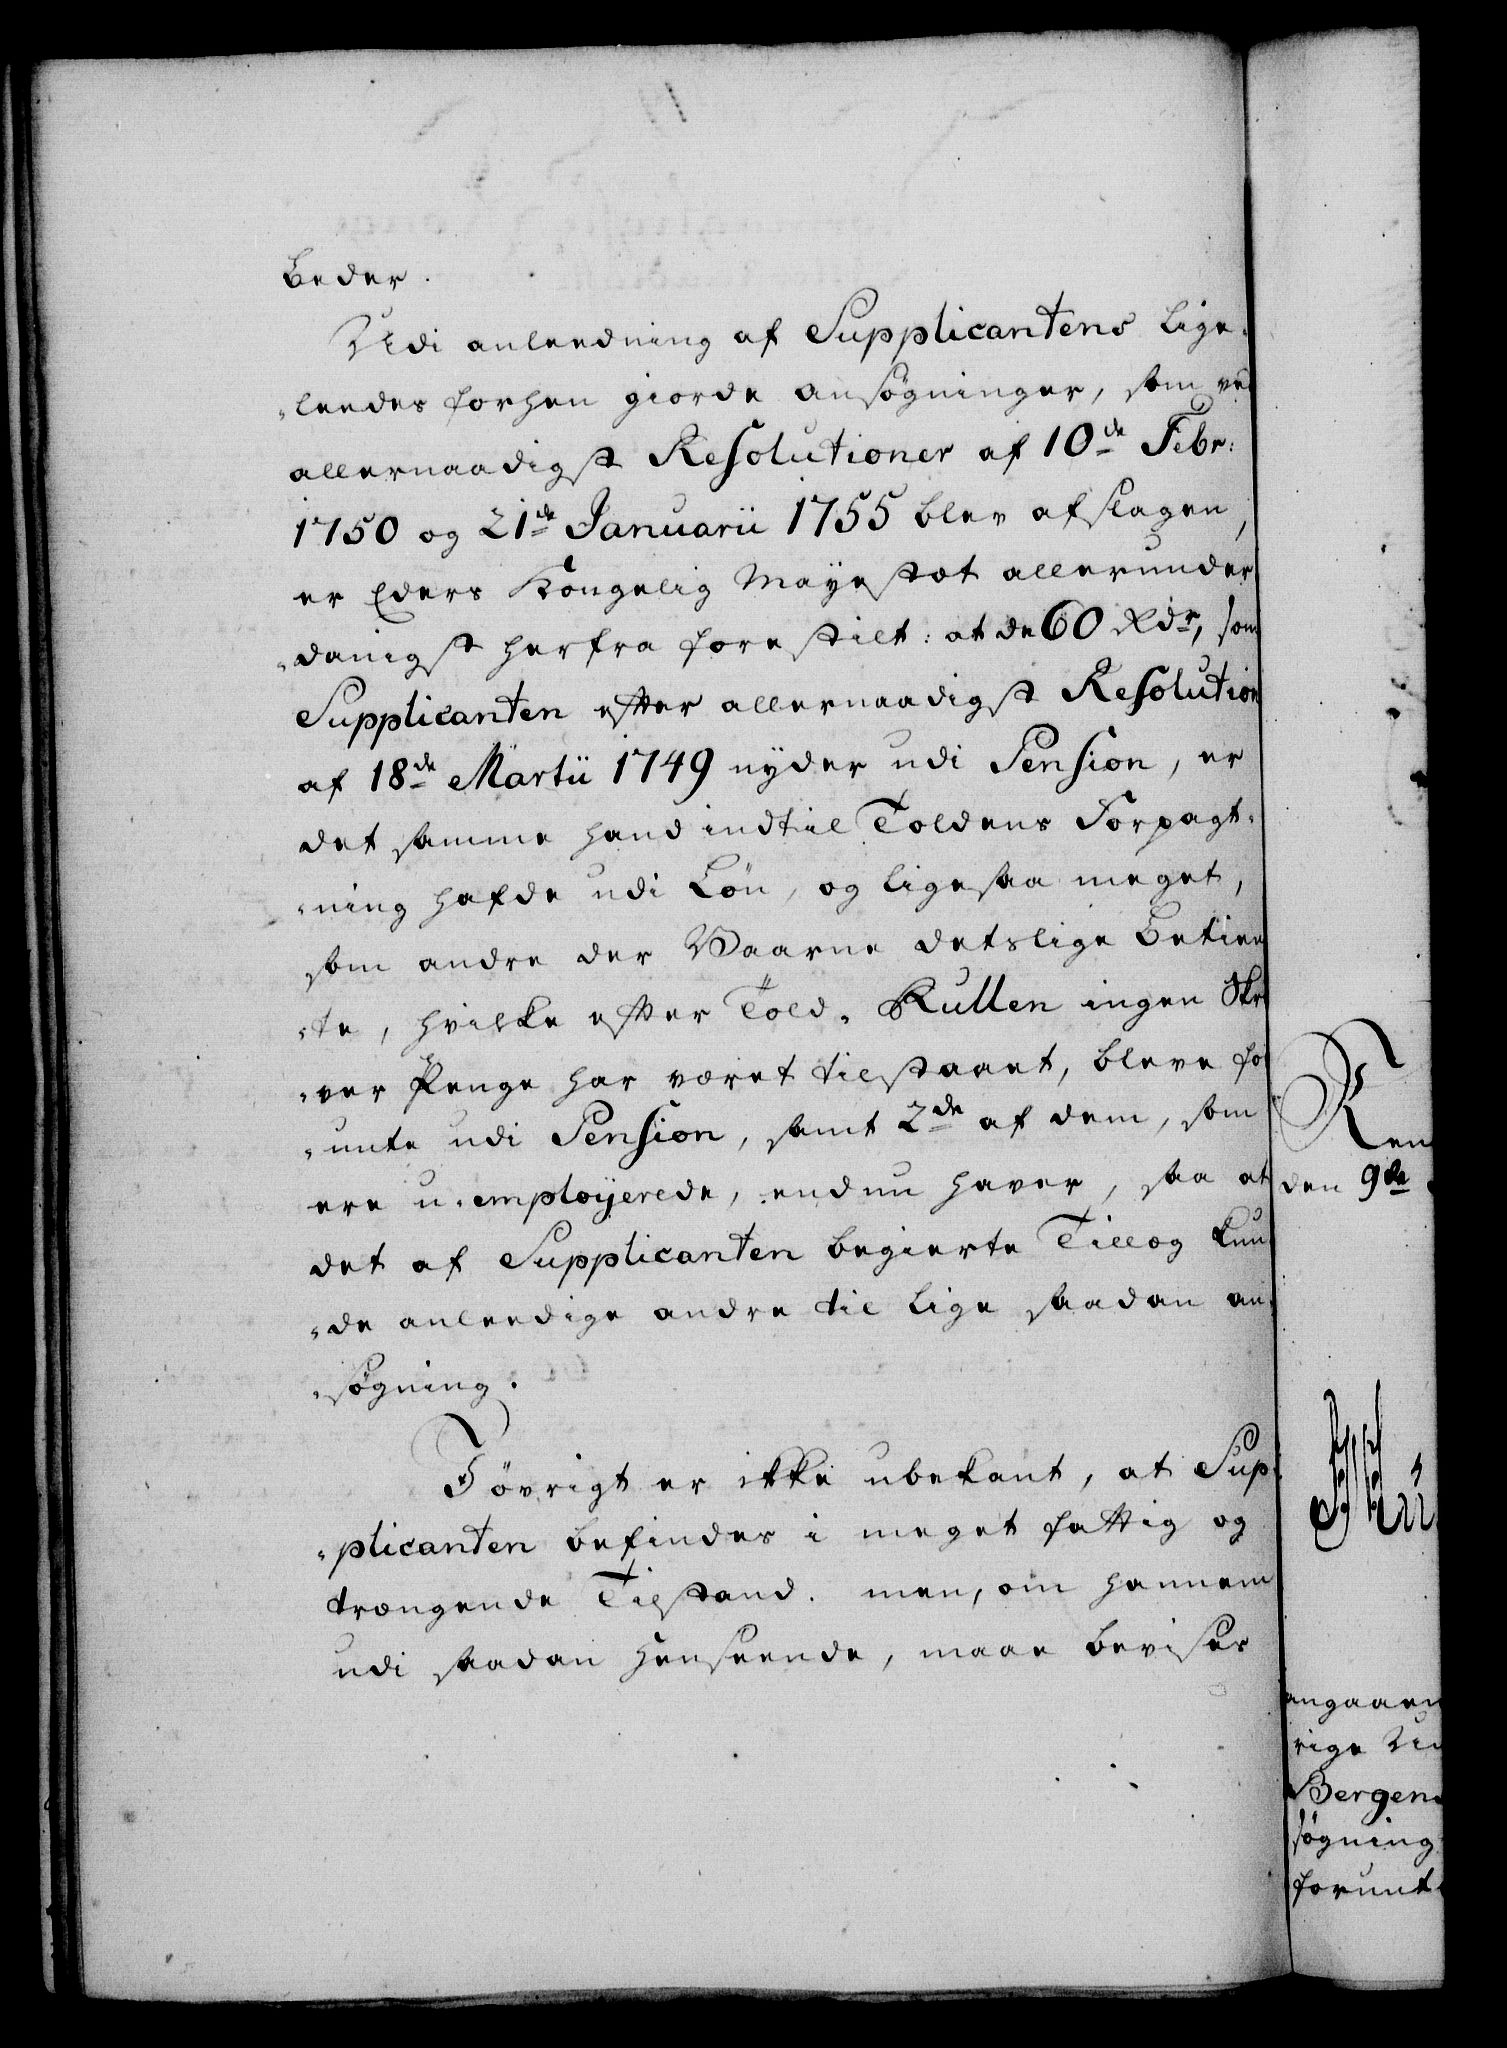 beder.
Udi anleedning af Supplicantens lige-
„leedes forhen giorde ansøgninger, som ved
allernaadigst Resolutioner af 10de Febr:
1750 og 21de Januarii 1755 blev afslagen,
er Eders Kongelig Mayestæt allerunder
„danigst herfra forestilt: at de 60 Rdr, som
Supplicanten efter allernaadigst Resolution
af 18de Martii 1749 nyder udi Pension, er
det samme hand indtil Toldens Forpagt-
„ning hafde udi Løn, og ligesaa meget,
som andre der Vaarne detslige Betien
„te, hvilke efter Told-Rullen ingen Skri
„ver Penge har været tilstaaet, bleve for
„unte udi Pension, samt 2de af dem, som
ere u-emploijerede, endnu haver, saa at
det af Supplicanten begierte Tillæg kun
„de anleedige andre til lige saadan an-
„søgning.
Jøvrigt er ikke ubekant, at Sup-
„plicanten befindes i meget fattig og
trængende Tilstand. men, om hannem
udi saadan Henseende, maae bevises
den 9de
angaaen
rige
Bergens
søgning
forunt